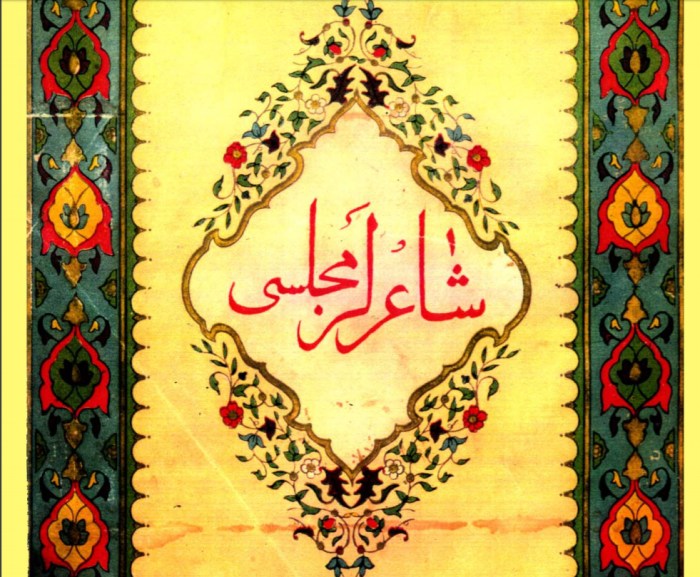 شاعرلر مجلسی